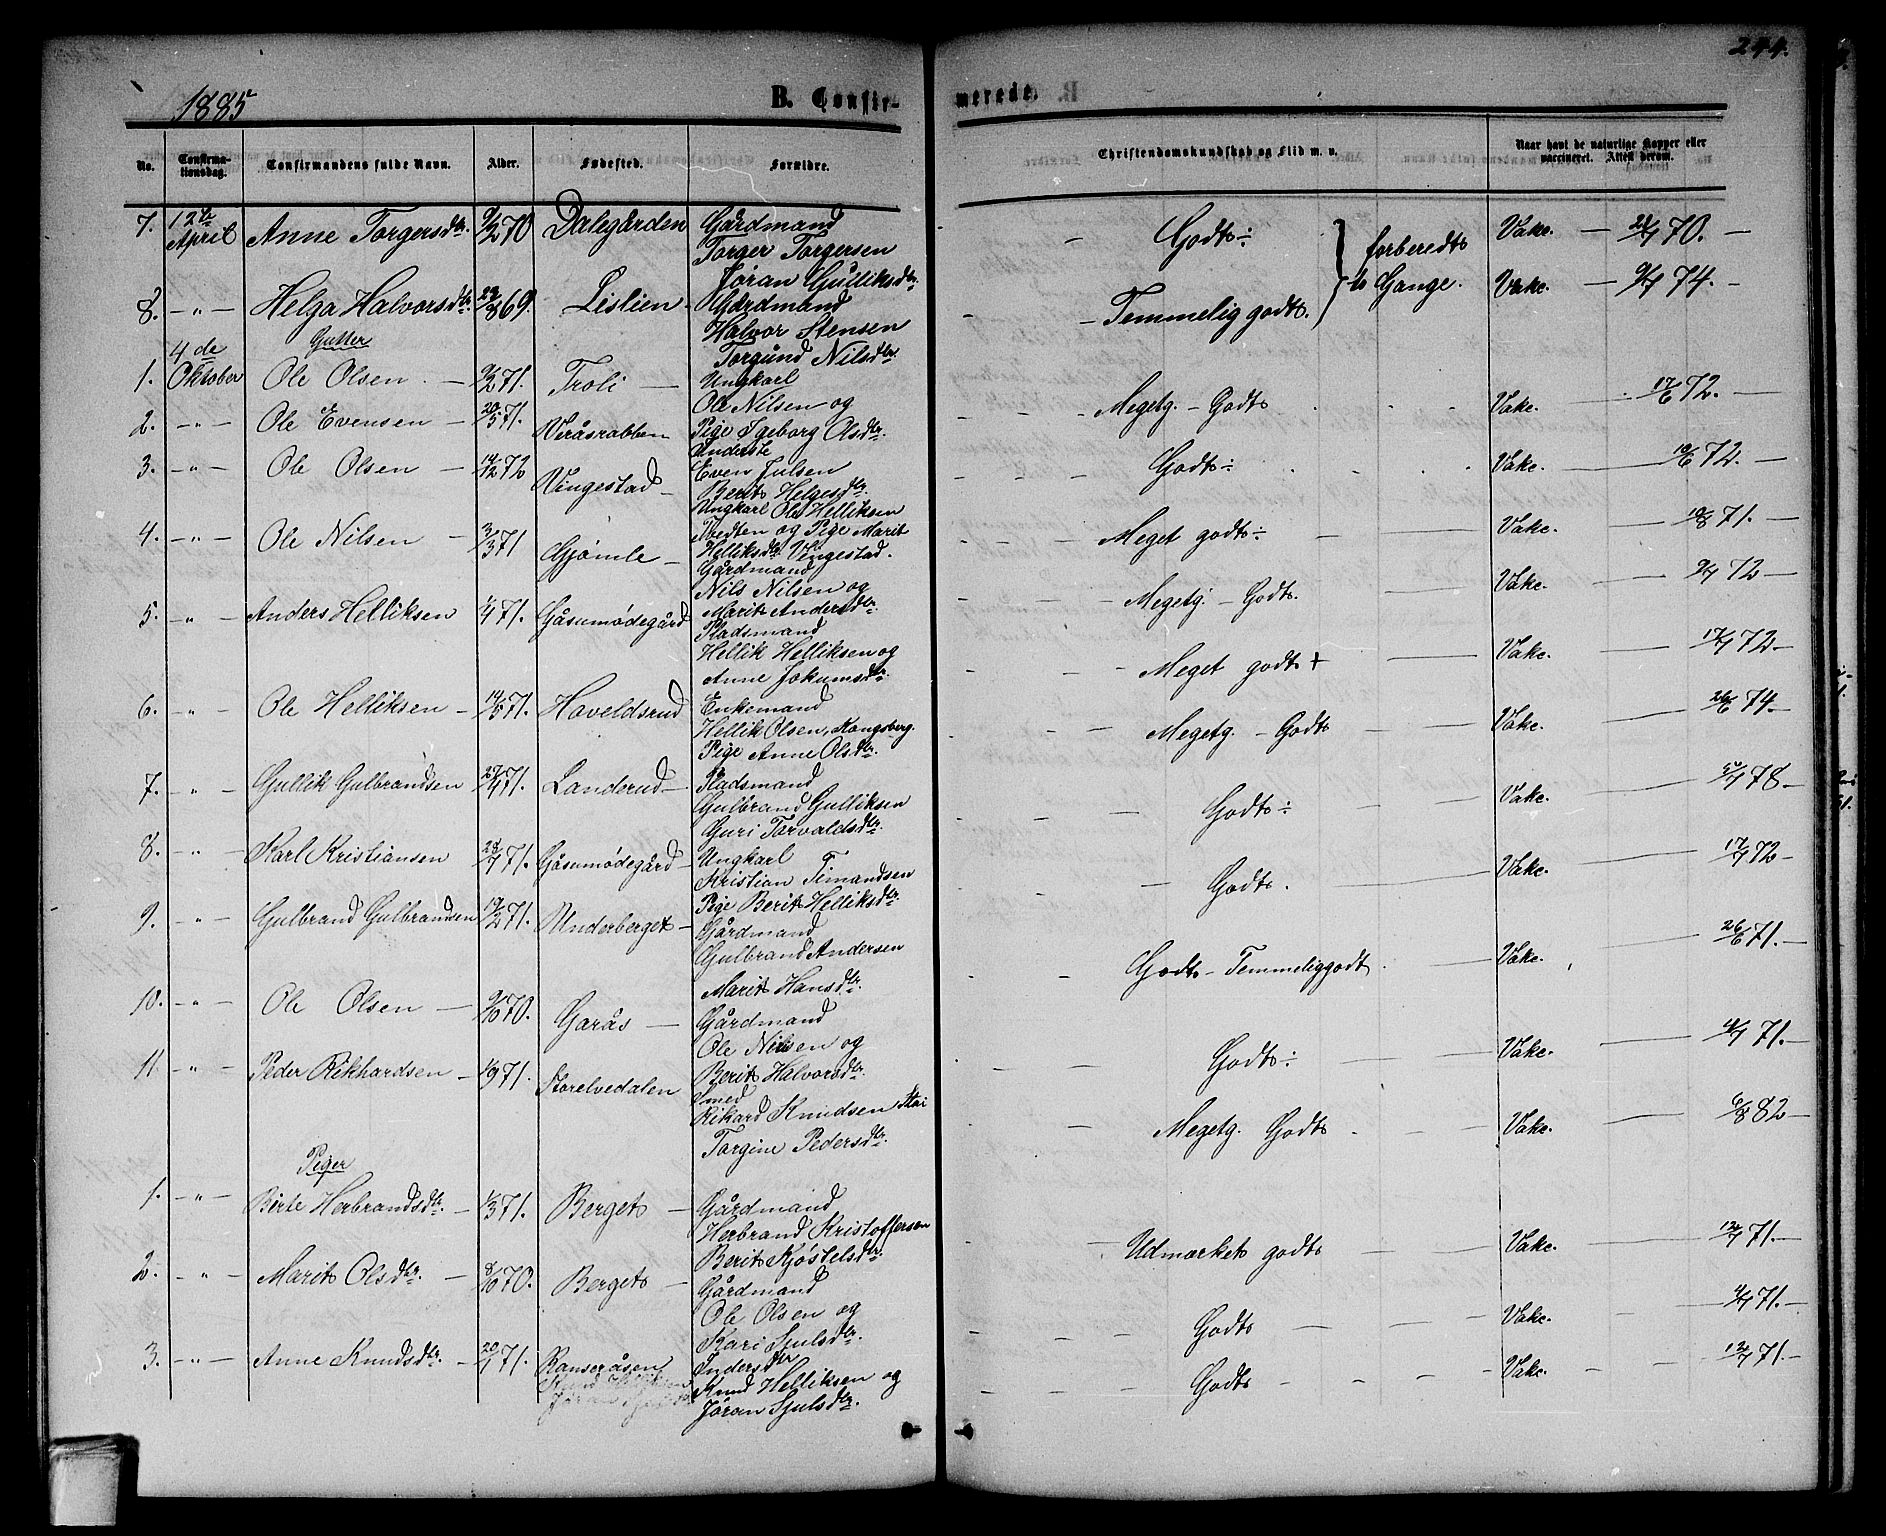 244.
1885
B. Confir-
merede.
No.
Confirma-
tionsdag.
Confirmandens fulde Navn.
Alder.
Fødested.
Forældre.
Christendomskundskab og Flid m. v.
Naar havt de naturlige Kopper eller
vaccineret. Attest derom.
7. 12te April Anne Torgersdtr. 9/2 70 Dalegården
Gårdmand
Torger Torgersen
Jøran Gulliksdtr.
Godt ÷ forberedt Vake. 70.
8. - " - Helga Halvorsdtr. 869. Lislien
Gårdmand
Halvor Stensen
Torgund Nilsdtr.
Temmelig godt. to Gange. Vake. 74.
Gutter
1. 4de Oktober Ole Olsen 71. Troli
Ungkarl
Ole Nilsen og
Pige Igeborg Olsdtr.
Megetg. - Godt Vake. 17/6 72.
2. - " - Ole Evensen 20/5 71. Veråsrabben
Inderste
Even Julsen
Berit Helgesdtr.
Godt ÷ Vake. 72.
3. - " - Ole Olsen 14/2 72 Vingestad
Ungkarl Ole Helliksen
Tvedten og Pige Marit
Helliksdtr. Vingestad.
Meget godt ÷ Vake. 71.
4. - " - Ole Nilsen 3/3 71 Gjømle
Gårdmand
Nils Nilsen og
Marit Andersdtr.
Megetg. - Godt. Vake. 72
5. - " - Anders Helliksen 71. Gåsumødegård
Pladsmand
Hellik Helliksen og
Anne Jokumsdtr.
Meget godt + Vake. 72
6. - " - Ole Helliksen 14/5 71. Hoveldsrud
Enkemand
Hellik Olsen, Kongsberg.
Pige Anne Olsdtr.
Megetg. - Godt Vake. 26/6 74.
7. " Gullik Gulbrandsen 71. Landerud
Pladsmand
Gulbrand Gulliksen
Guri Torvaldsdtr.
Godt ÷ Vake. 78
8. " Karl Kristiansen 71. Gåsumødegård
Ungkarl
Kristian Timandsen
Pige Berit Helliksdtr.
Godt. Vake. 72
9. " Gulbrand Gulbrandsen 71. Underberget
Gårdmand
Gulbrand Andersen
Marit Hansdtr.
Godt - Temmeliggodt Vake. 26/6 71.
10. - " - Ole Olsen 9/10 70. Garås
Gårdmand
Ole Nilsen og
Berit Halvorsdtr.
Godt ÷ Vake. 71.
11. - " - Peder Rikhardsen 71. Storelvedalen
Smed
Rikard Knudsen Stai
Torgine Pedersdtr.
Megetg. Godt Vake. 6/8 82
Piger
1. - " - Birte Herbrandsdtr. 71. Berget
Gårdmand
Herbrand Kristoffersen
Berit Kjøstelsdtr.
Udmærket godt Vake. 71.
2. - " - Marit Olsdtr. 8/10 70. Berget
Gårdmand
Ole Olsen og
Kari Sjulsdtr.
Godt Vake. 71.
3. - " - Anne Knudsdtr. 71. Ranseråsen
Knud Helliksen og
Jøran Sjulsdtr.
Godt Vake. 71.